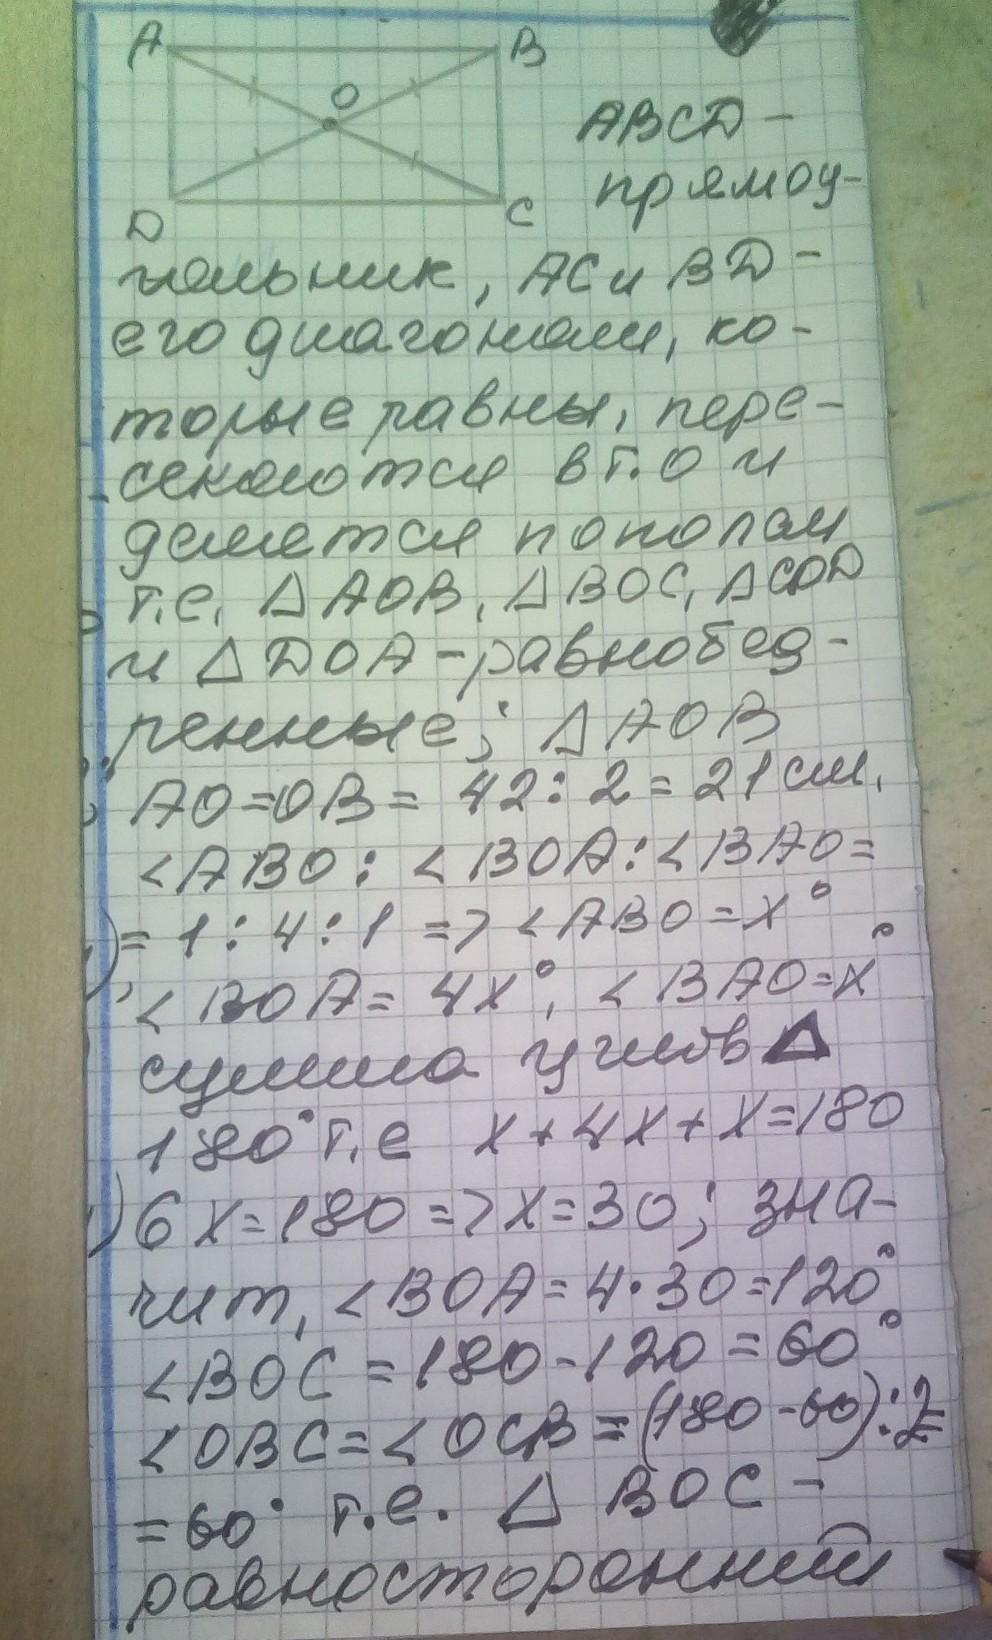 A B
O
ABCD -
прямоу-
D C
гольник, AC и BD -
его диагонали, ко-
торые равны, пере-
секаются в т.О и
делятся пополам
т.е. △AOB, △BOC, △COD
и △DOA - равнобед-
ренные; △AOB
AO=OB= 42:2=21см.
<ABO: <BOA:<BAO=
= 1:4:1 => <ABO=x°
<BOA= 4x°, <BAO=x°
сумма углов △
180° т.е x+4x+x=180
6x=180=>x=30; зна-
чит, <BOA=4·30=120°
<BOC=180-120=60°
<OBC=<OCB=(180-60):2=
=60° т.е. △ BOC -
равносторонний